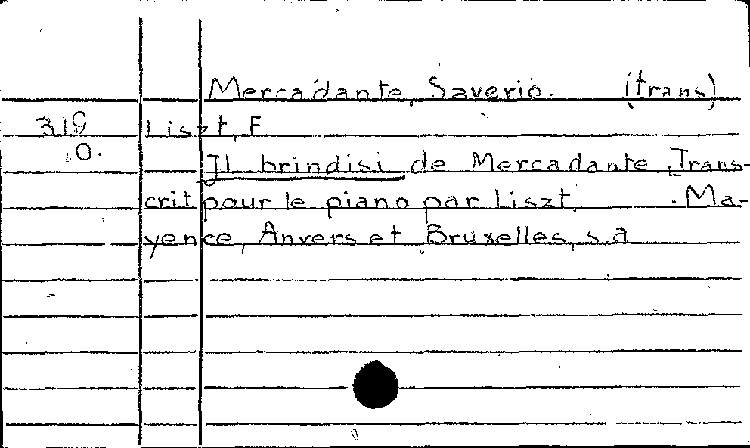 Mercadante, Saverio. (trans)
319 Liszt, F
O.
Il brindisi de Mercadante, Trans-
crit pour le piano par Liszt. Ma-
yence, Anvers et Bruxelles, s.a